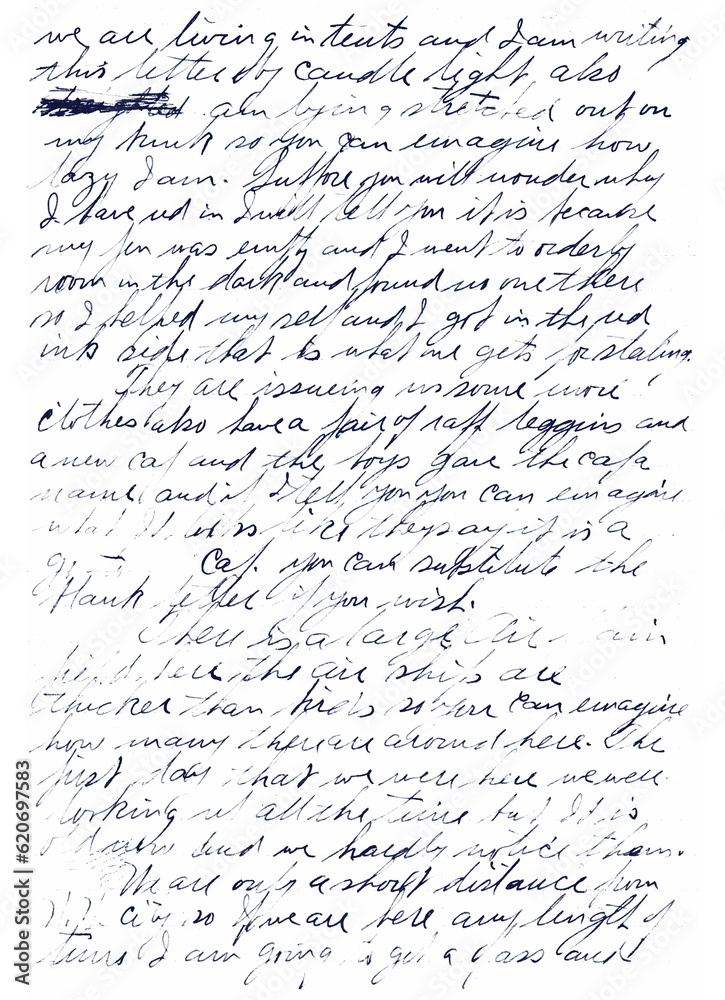 we are living in tents and I am writing
this letter by candle light, also
am lying stretched out on
my bunk so you can emagine how
lazy I am. Suppose you will wonder why
I have red in I will tell you it is because
my pen was empty and I went to orderly
room in the dark and found no one there
so I helped my self and I got in the red
ink side that is what one gets for stealing.
They are issueing us some more
clothes also have a pair of raff leggins and
a new cap and the boys gave the cap a
name and if I tell you you can emagine
what It looks like they say it is a
cap. you can substitute the
blank letter if you wish.
There is a large Air
field here the air ships are
thicker than birds so you can emagine
how many there are around here. The
first day that we were here we were
looking up all the time but It is
old now and we hardly notice them.
We are only a short distance from
city so If we are here any length of
time I am going to get a pass and
Adobe Stock | #620697583